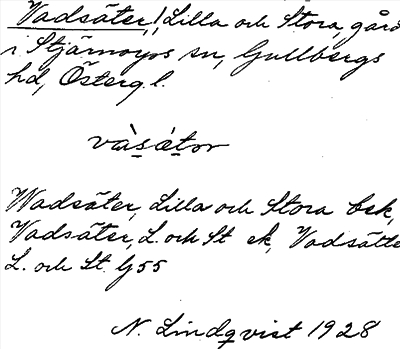 Vadsäter, Lilla och Stora, gård
i Stjärnorps sn, Gullbergs
hd, Österg. l.
vàsǽtər
Wadsäter, Lilla och Stora bsk,
Vadsäter, L. och St ek, Vadsätte
L. och St. G55
N. Lindqvist 1928